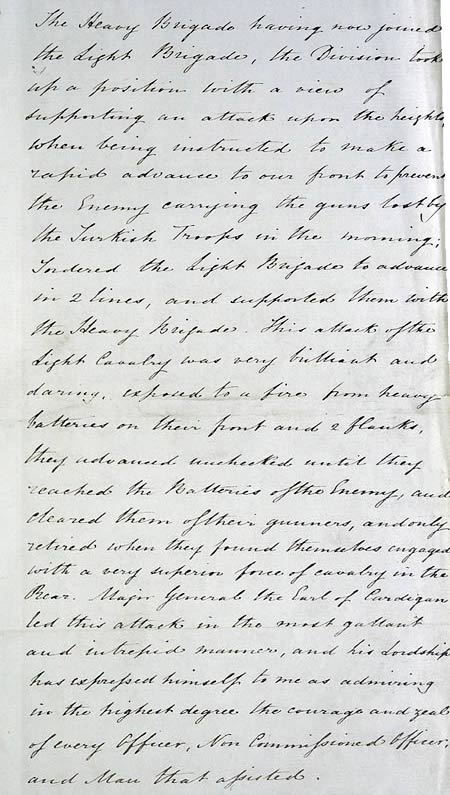 The Heavy Brigade having now joined
the Light Brigade, the Division took
up a position with a view of
supporting an attack upon the heights,
when being instructed to make a
rapid advance to our front to prevent
the Enemy carrying the guns lost by
the Turkish Troops in the morning;
I ordered the Light Brigade to advance
in 2 lines, and supported them with
the Heavy Brigade. This attack of the
Light Cavalry was very brilliant and
daring, exposed to a fire from heavy
batteries on their front and 2 flanks,
they advanced unchecked until they
reached the Batteries of the Enemy, and
cleared them of their gunners, and only
retired when they found themselves engaged
with a very superior force of cavalry in the
Rear. Major General the Earl of Cardigan
led this attack in the most gallant
and intrepid manner, and his Lordship
has expressed himself to me as admiring
in the highest degree the courage and zeal
of every Officer, Non Commissioned Officer,
and Man that assisted.